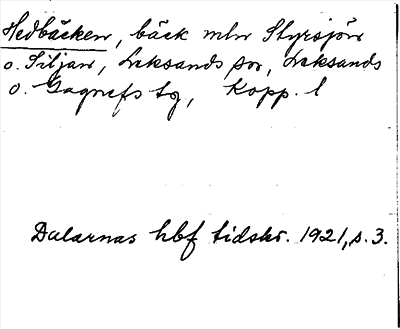 Hedbäcken, bäck mln Styrsjön
o. Siljan, Leksands sn, Leksands
o. Gagnefs tg, Kopp. l
Dalarnas hbf tidskr. 1921, s. 3.